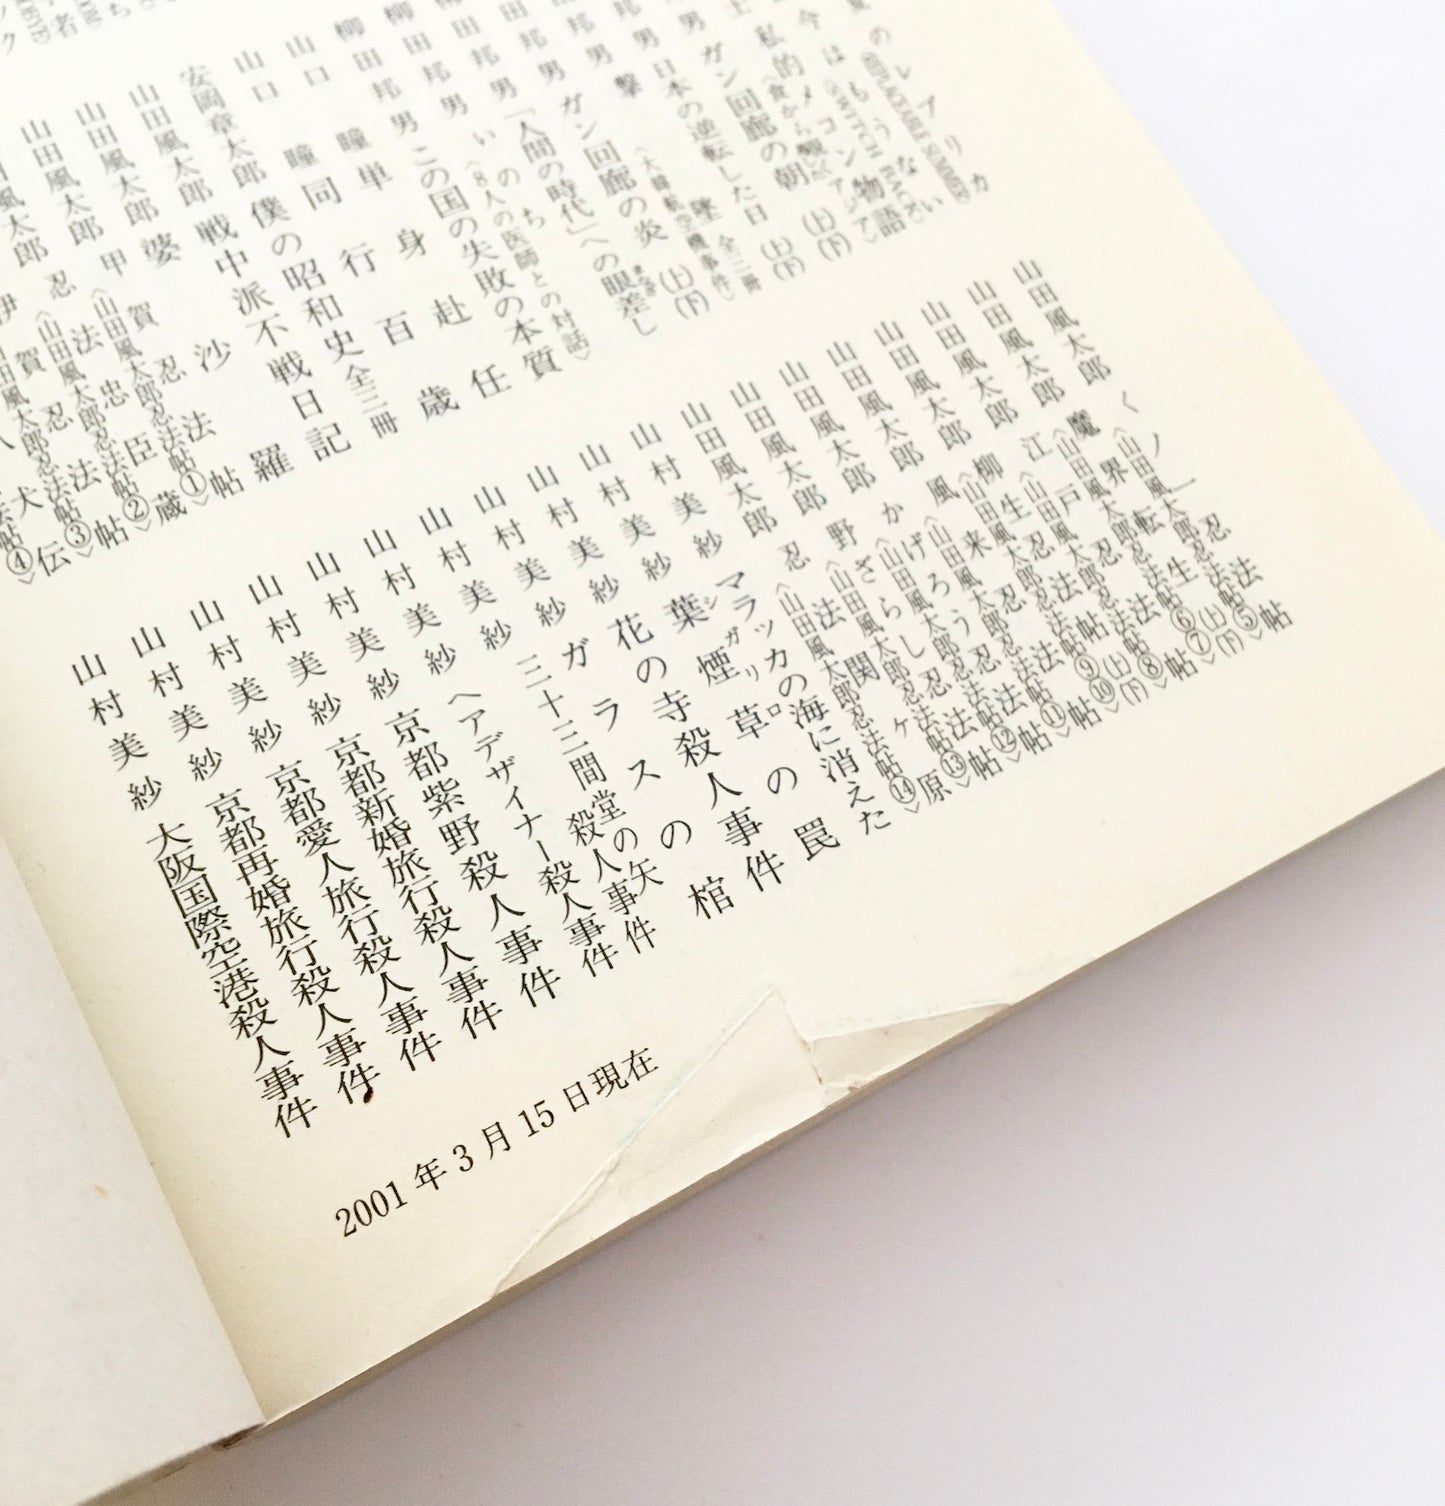 夏のレプリカ
〈REPLACEABLE SUMMER〉
今はもうない
〈SWITCH BACK〉
私的メコン物語
〈食から覗くアジア〉
ガン回廊の朝(上)(下)
男 日本の逆転した日
邦男 撃墜 全三冊
〈大韓航空機事件〉
田邦男 ガン回廊の炎(上)(下)
田邦男 「人間の時代」への眼差し
まなざ
柳田邦男 いのち
〈8人の医師との対話〉
柳田邦男 この国の失敗の本質
山口瞳 単身赴任
山口瞳 同行百歳
安岡章太郎 僕の昭和史 全三冊
山田風太郎 戦中派不戦日記
山田風太郎 婆沙羅
山田風太郎 甲賀忍法帖
〈山田風太郎忍法帖①〉
山田風太郎 忍法忠臣蔵
〈山田風太郎忍法帖②〉
伊賀忍法帖
〈山田風太郎忍法帖③〉
八犬伝
忍法帖④〉
山田風太郎 くノ一忍法帖
〈山田風太郎忍法帖⑤〉
山田風太郎 魔界転生(上)(下)
〈山田風太郎忍法帖⑥⑦〉
山田風太郎 江戸忍法帖
〈山田風太郎忍法帖⑧〉
山田風太郎 柳生忍法帖(上)(下)
〈山田風太郎忍法帖⑨⑩〉
山田風太郎 風来忍法帖
〈山田風太郎忍法帖⑪〉
山田風太郎 かげろう忍法帖
〈山田風太郎忍法帖⑫〉
山田風太郎 野ざらし忍法帖
〈山田風太郎忍法帖⑬〉
山田風太郎 忍法関ヶ原
〈山田風太郎忍法帖⑭〉
山村美紗 マラッカの海に消えた
山村美紗 葉煙草の罠
シガリロ
山村美紗 花の寺殺人事件
山村美紗 ガラスの棺
山村美紗 三十三間堂の矢殺人事件
山村美紗 ヘアデザイナー殺人事件
山村美紗 京都紫野殺人事件
山村美紗 京都新婚旅行殺人事件
山村美紗 京都愛人旅行殺人事件
山村美紗 京都再婚旅行殺人事件
山村美紗 大阪国際空港殺人事件
2001年3月15日現在